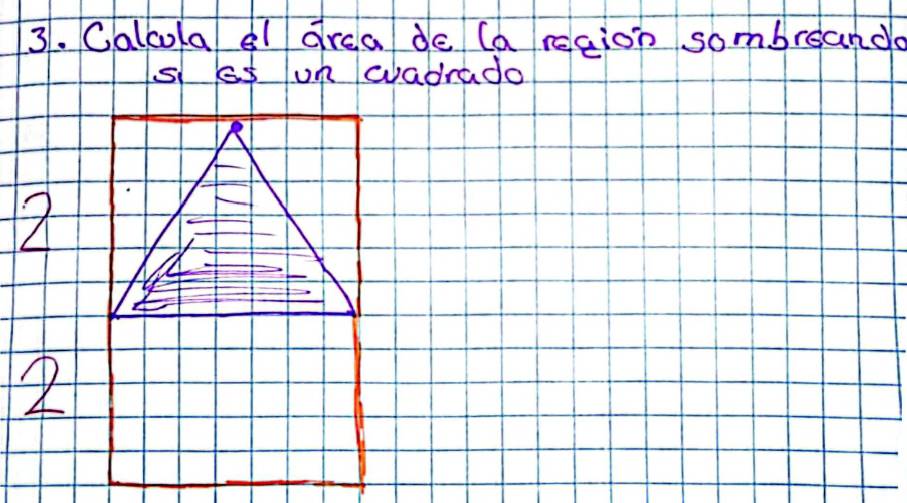 3. Calcula el área de la región sombreando
si es un cuadrado
2
2